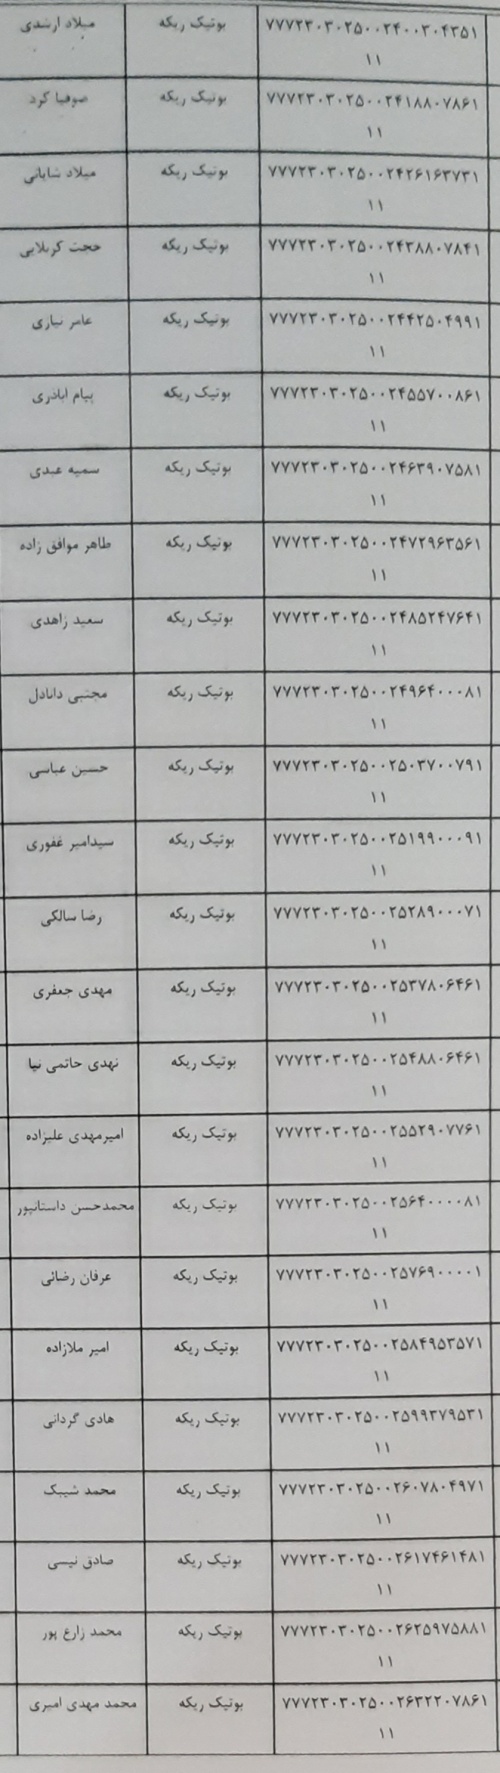 ۷۷۷۲۳۰۳۰۲۵۰۰۲۴۰۰۳۰۴۳۵۱ بوتیک ریکه میلاد ارشدی
۱۱
۷۷۷۲۳۰۳۰۲۵۰۰۲۴۱۸۸۰۷۸۶۱ بوتیک ریکه صوفیا کرد
۱۱
۷۷۷۲۳۰۳۰۲۵۰۰۲۴۲۶۱۶۳۷۳۱ بوتیک ریکه میلاد شایانی
۱۱
۷۷۷۲۳۰۳۰۲۵۰۰۲۴۳۸۸۰۷۸۴۱ بوتیک ریکه حجت کربلایی
۱۱
۷۷۷۲۳۰۳۰۲۵۰۰۲۴۴۲۵۰۴۹۹۱ بوتیک ریکه عامر نیازی
۱۱
۷۷۷۲۳۰۳۰۲۵۰۰۲۴۵۵۷۰۰۸۶۱ بوتیک ریکه پیام اباذری
۱۱
۷۷۷۲۳۰۳۰۲۵۰۰۲۴۶۳۹۰۷۵۸۱ بوتیک ریکه سمیه عبدی
۱۱
۷۷۷۲۳۰۳۰۲۵۰۰۲۴۷۲۹۶۳۵۶۱ بوتیک ریکه طاهر موافق زاده
۱۱
۷۷۷۲۳۰۳۰۲۵۰۰۲۴۸۵۲۴۷۶۴۱ بوتیک ریکه سعید زاهدی
۱۱
۷۷۷۲۳۰۳۰۲۵۰۰۲۴۹۶۴۰۰۰۸۱ بوتیک ریکه مجتبی دانادل
۱۱
۷۷۷۲۳۰۳۰۲۵۰۰۲۵۰۳۷۰۰۷۹۱ بوتیک ریکه حسین عباسی
۱۱
۷۷۷۲۳۰۳۰۲۵۰۰۲۵۱۹۹۰۰۰۹۱ بوتیک ریکه سیدامیر غفوری
۱۱
۷۷۷۲۳۰۳۰۲۵۰۰۲۵۲۸۹۰۰۰۷۱ بوتیک ریکه رضا سالکی
۱۱
۷۷۷۲۳۰۳۰۲۵۰۰۲۵۳۷۸۰۶۴۶۱ بوتیک ریکه مهدی جعفری
۱۱
۷۷۷۲۳۰۳۰۲۵۰۰۲۵۴۸۸۰۶۴۶۱ بوتیک ریکه نهدی حاتمی نیا
۱۱
۷۷۷۲۳۰۳۰۲۵۰۰۲۵۵۲۹۰۷۷۶۱ بوتیک ریکه امیرمهدی علیزاده
۱۱
۷۷۷۲۳۰۳۰۲۵۰۰۲۵۶۴۰۰۰۰۸۱ بوتیک ریکه محمدحسن داستانپور
۱۱
۷۷۷۲۳۰۳۰۲۵۰۰۲۵۷۶۹۰۰۰۰۱ بوتیک ریکه عرفان رضائی
۱۱
۷۷۷۲۳۰۳۰۲۵۰۰۲۵۸۴۹۵۳۵۷۱ بوتیک ریکه امیر ملازاده
۱۱
۷۷۷۲۳۰۳۰۲۵۰۰۲۵۹۹۳۷۹۵۳۱ بوتیک ریکه هادی گردانی
۱۱
۷۷۷۲۳۰۳۰۲۵۰۰۲۶۰۷۸۰۴۹۷۱ بوتیک ریکه محمد شیبک
۱۱
۷۷۷۲۳۰۳۰۲۵۰۰۲۶۱۷۴۶۱۴۸۱ بوتیک ریکه صادق نیسی
۱۱
۷۷۷۲۳۰۳۰۲۵۰۰۲۶۲۵۹۷۵۸۸۱ بوتیک ریکه محمد زارع پور
۱۱
۷۷۷۲۳۰۳۰۲۵۰۰۲۶۳۲۲۰۷۸۶۱ بوتیک ریکه محمد مهدی امیری
۱۱